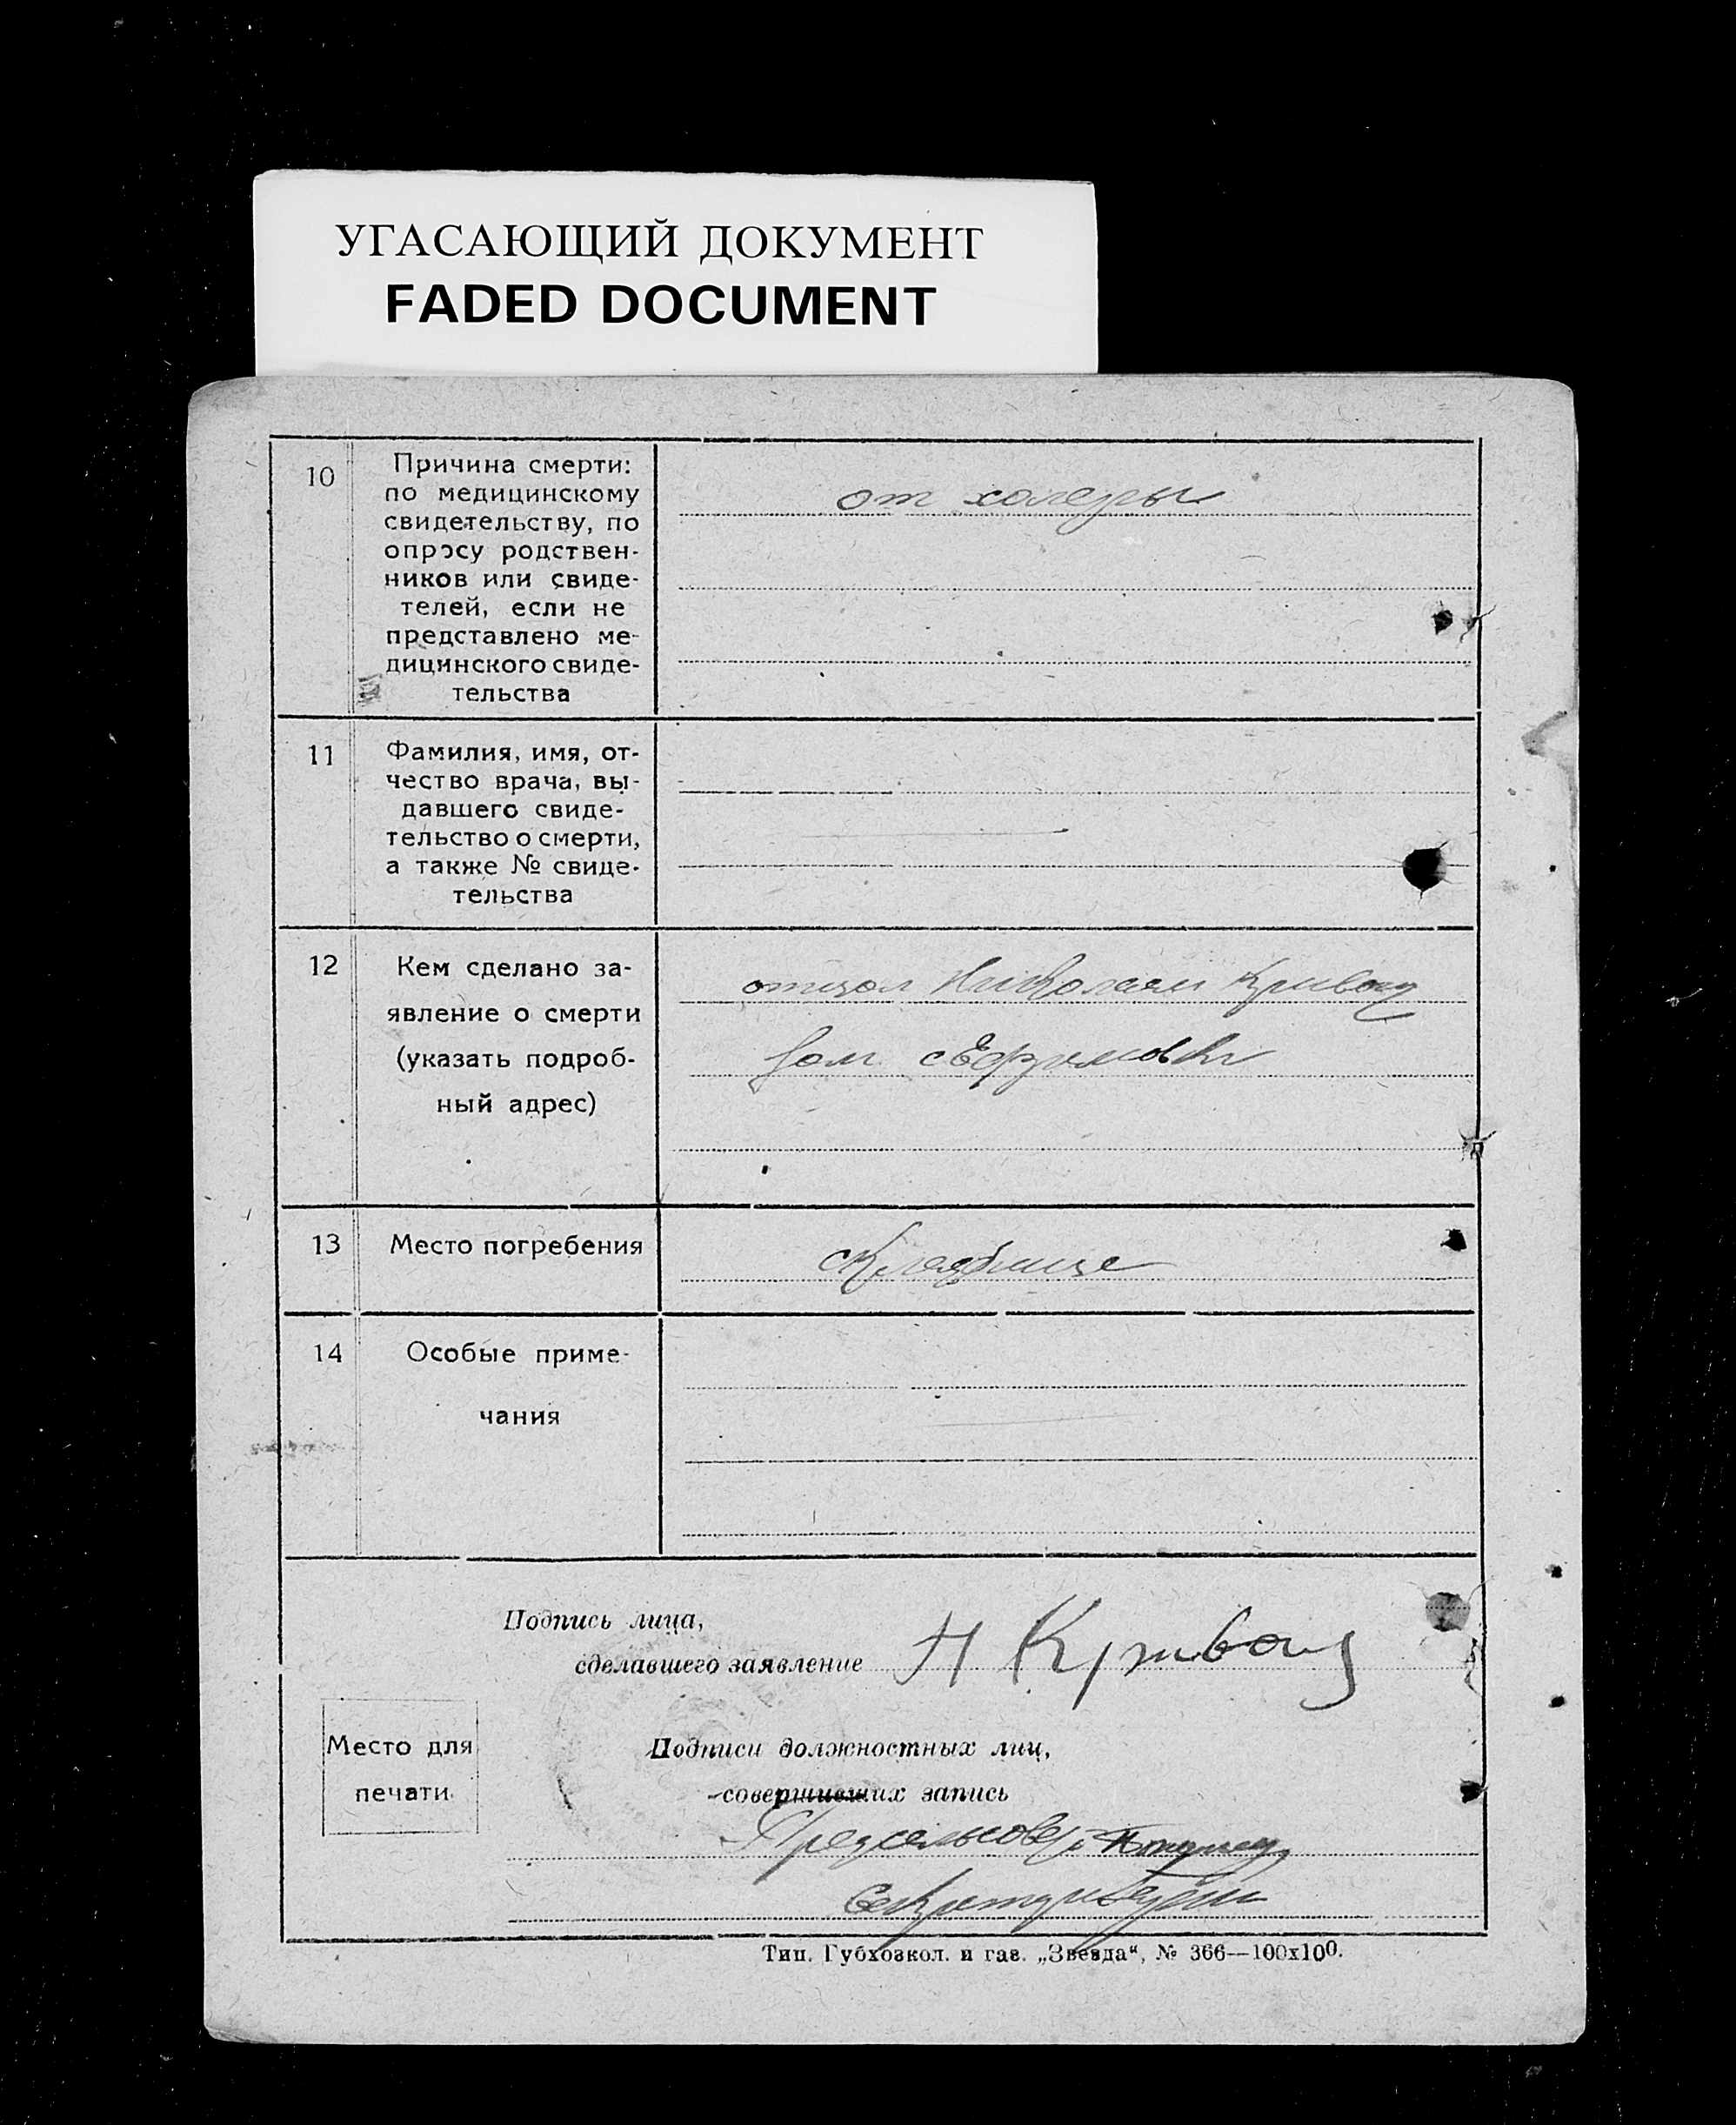 УГАСАЮЩИЙ ДОКУМЕНТ
FADED DOCUMENT
10
Причина смерти:
по медицинскому
свидетельству, по
опросу родствен-
ников или свиде-
телей, если не
представлено ме-
дицинского свиде-
тельства
от холеры
11
Фамилия, имя, от-
чество врача, вы-
давшего свиде-
тельство о смерти,
а также № свиде-
тельства
12
Кем сделано за-
явление о смерти
(указать подроб-
ный адрес)
отцом Николаем Кривощ
13
Место погребения
14
Особые приме-
чания
Подпись лица,
сделавшего заявление Н Кривощ
Место для
печати
Подписи должностных лиц,
совершивших запись
Предсельсовета
Секретарь
Тип. Губхозкол. и газ. „Звезда“, № 366—100х100.